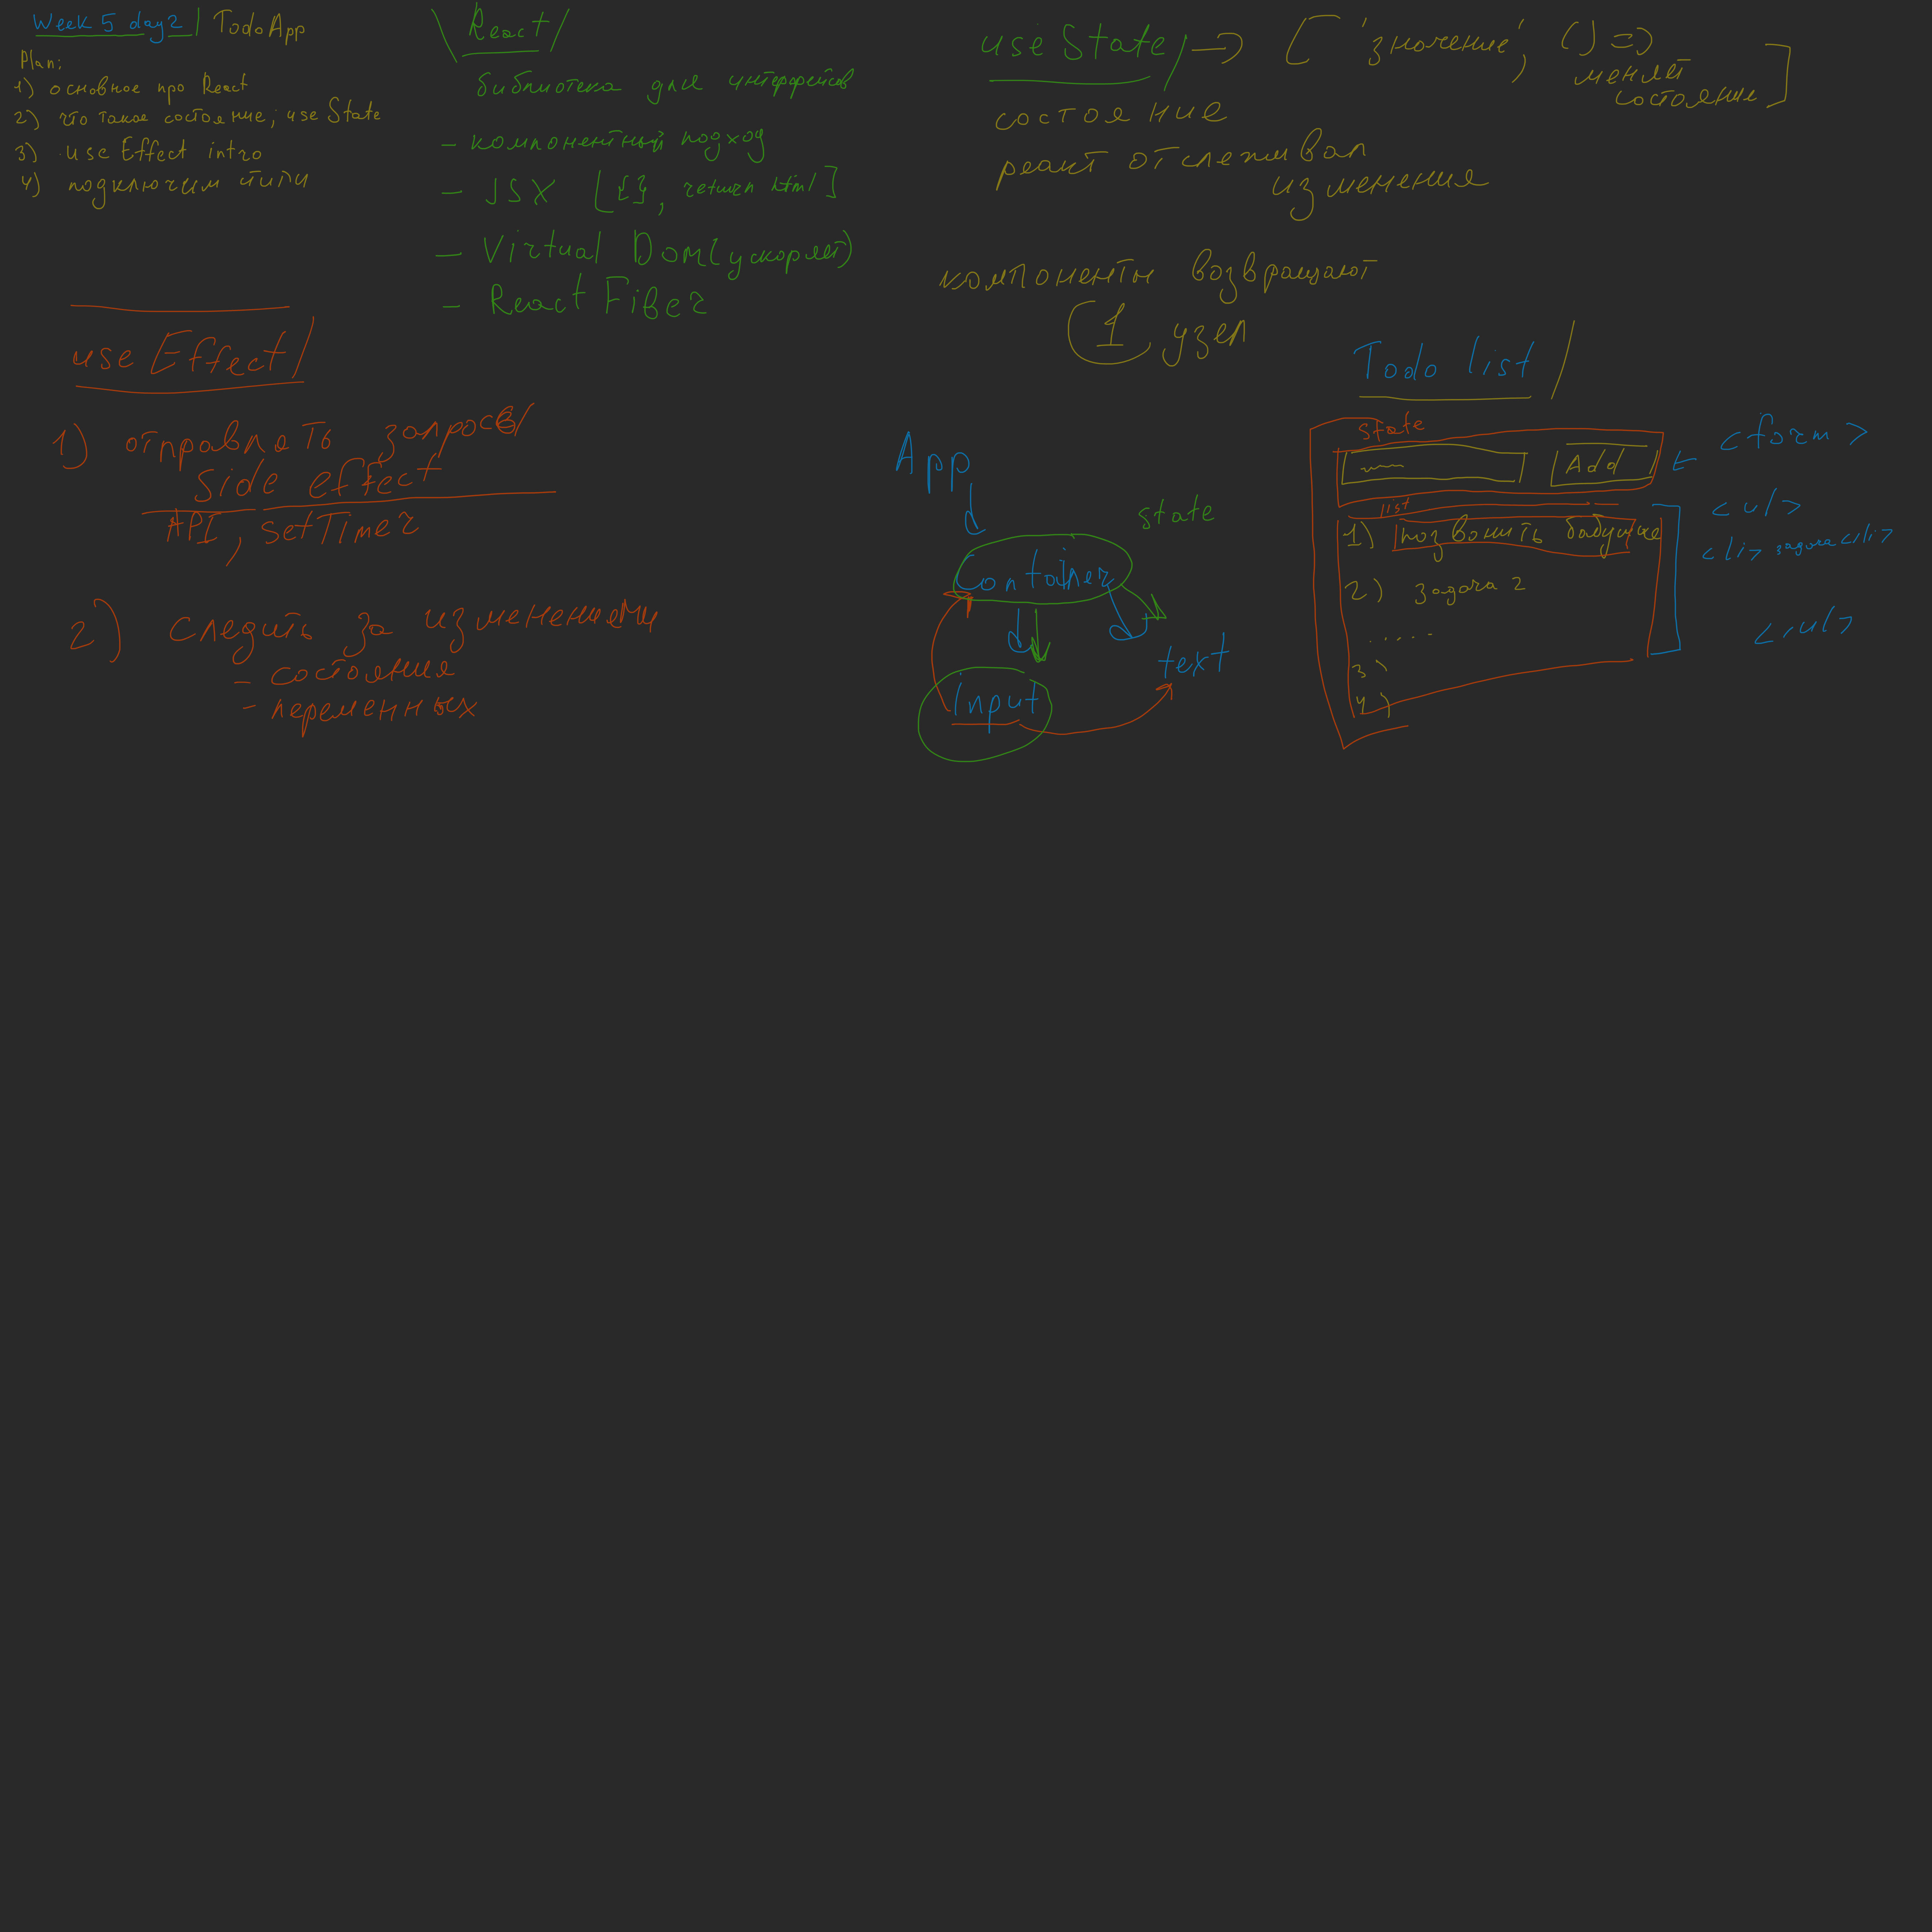 Week 5 day 2 | TodoApp
Plan:
1) основное про React
2) что такое состояние, useState
3) useEffect intro
4) подключим типы
React
библиотека для интерфейсов
- компонентный подход
- JSX [JS, return html]
- Virtual Dom (ускоряет)
- React Fiber
useState → ['значение', () =>
меняет
состояние]
состояние
реакт отслеживал
изменение
компоненты возвращают
1 узел
useEffect
1) отправлять запросы
side effect
API, setTimer
2) следить за изменением
- состояния
- переменных
App
state
Container
Input
text
Todo list
state
Add
<form>
list
1) позвонить бабушке
2) задача 2
.....
3)
4)
<ul>
<li> задача </li>
</ul>